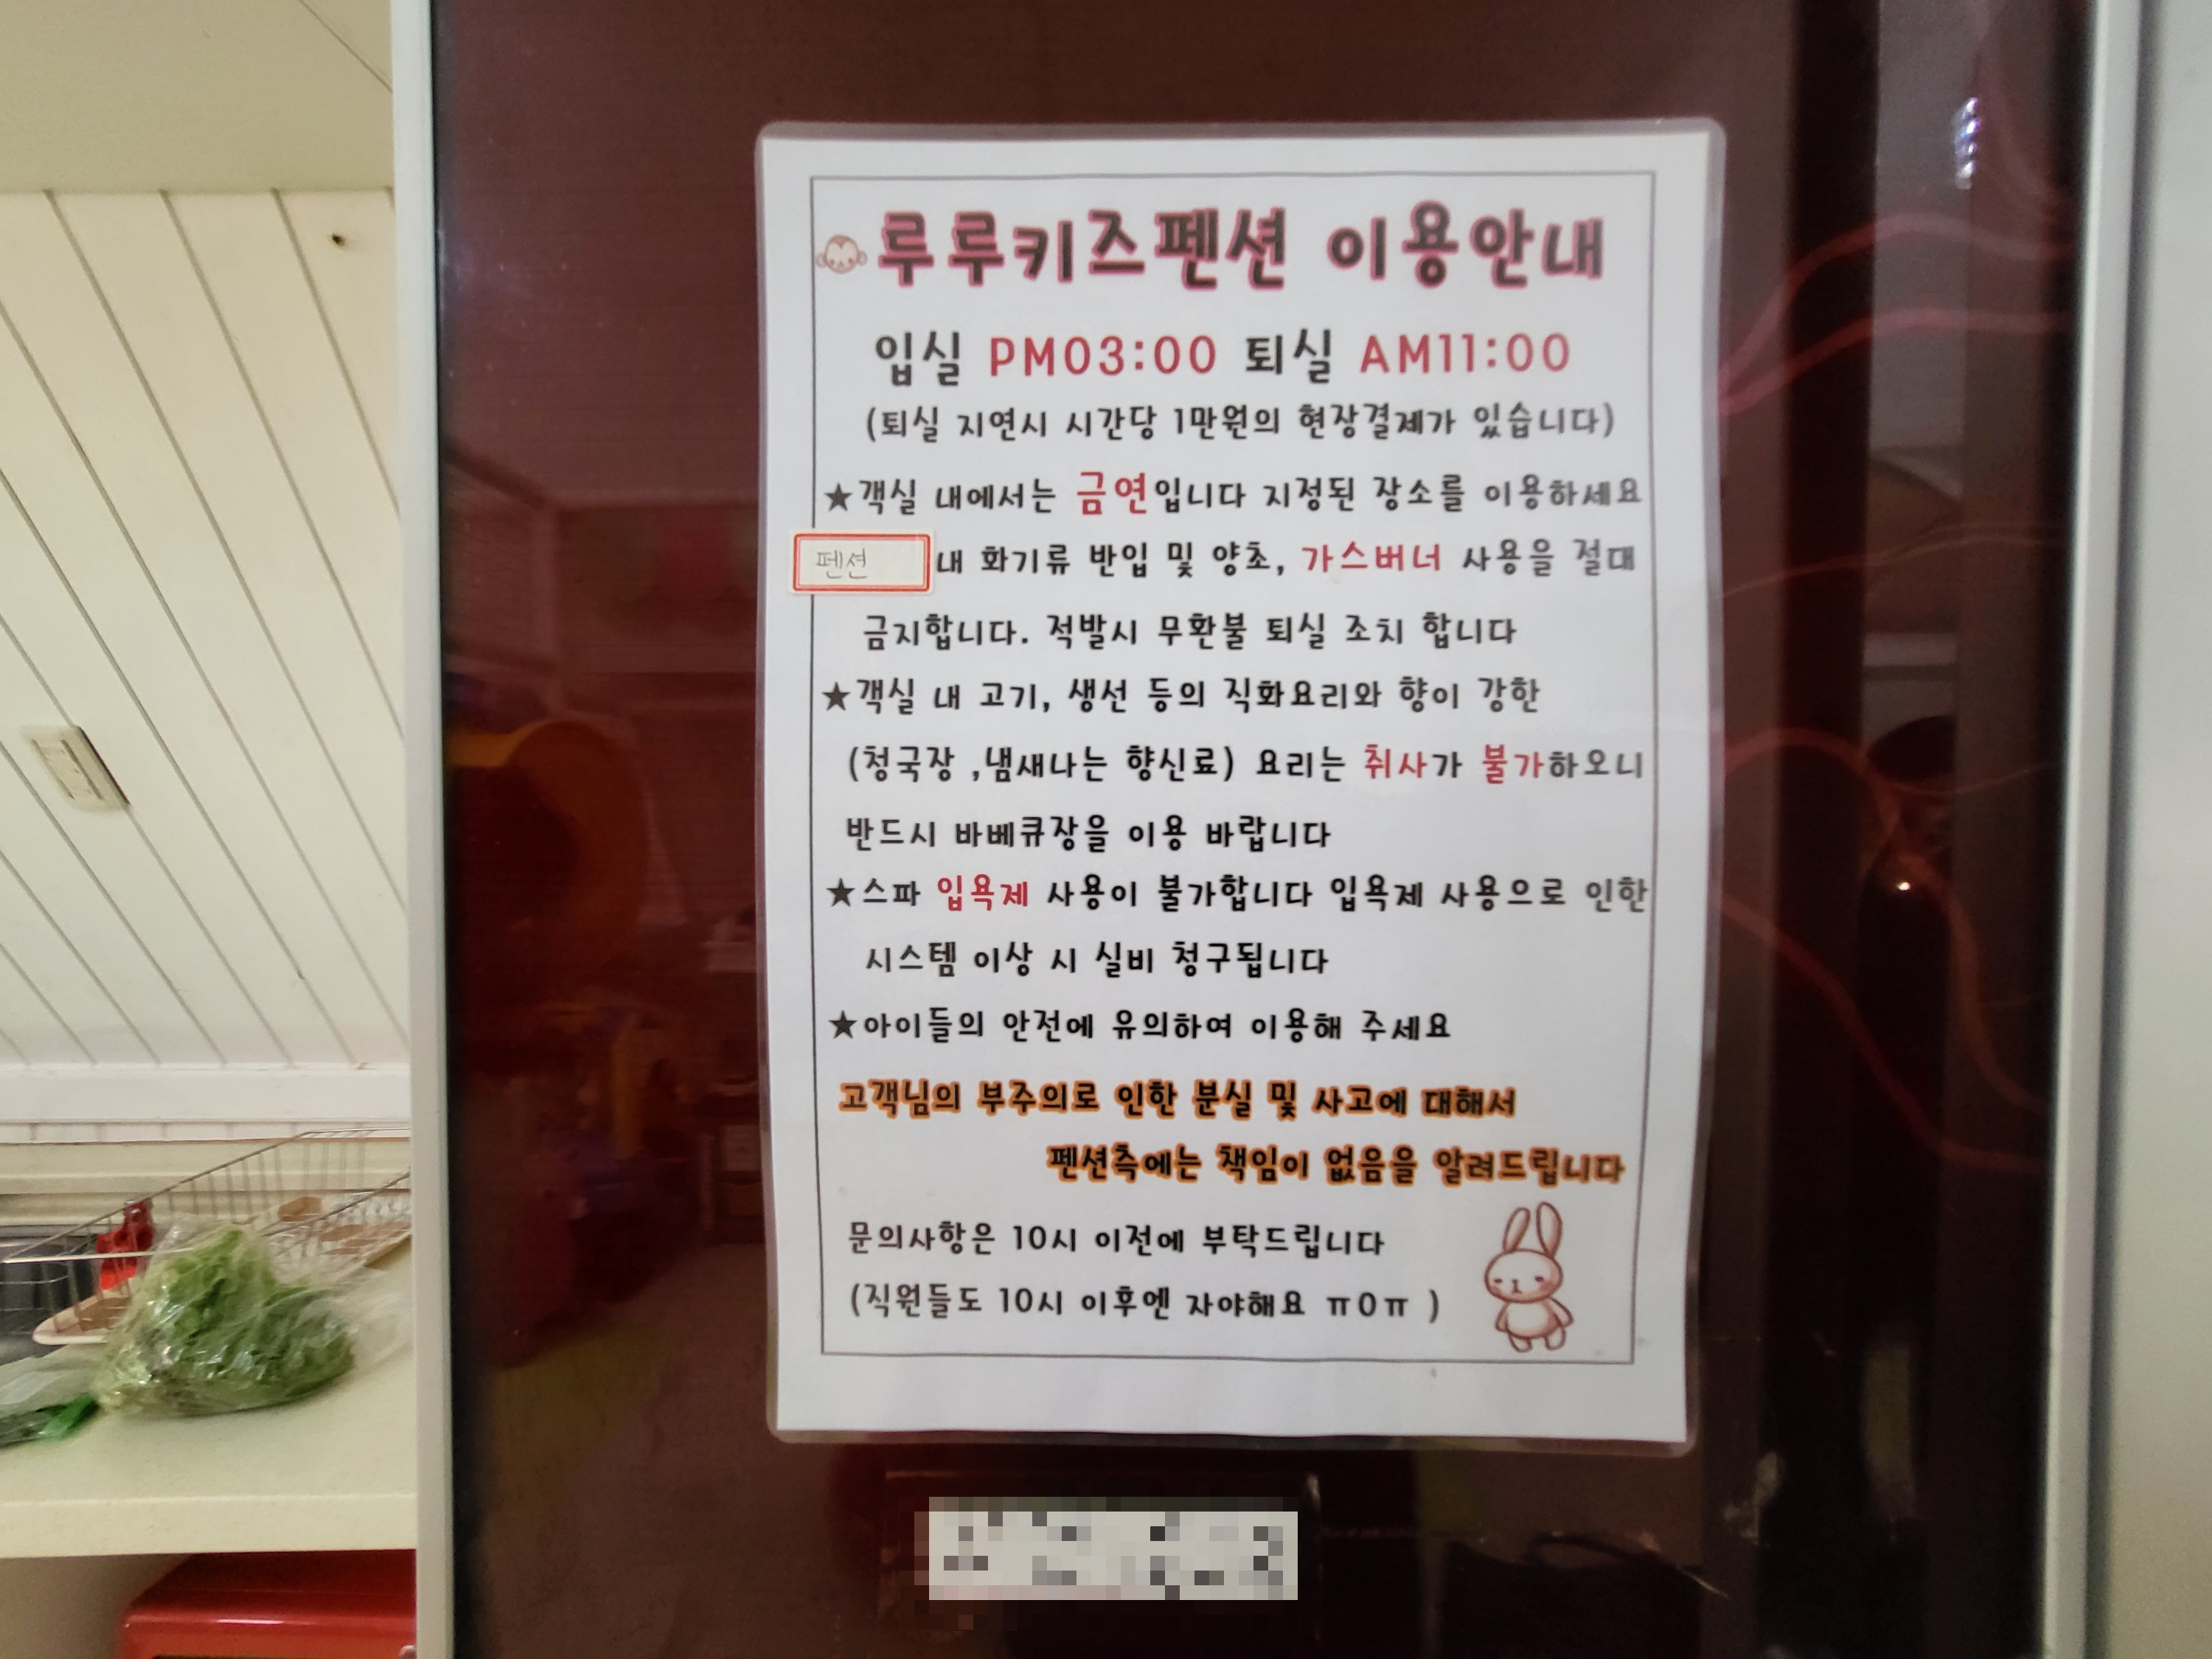 루루키즈펜션 이용안내
입실 PM03:00 퇴실 AM11:00
(퇴실 지연시 시간당 1만원의 현장결제가 있습니다)
★객실 내에서는 금연입니다 지정된 장소를 이용하세요
펜션 내 화기류 반입 및 양초, 가스버너 사용을 절대
금지합니다. 적발시 무환불 퇴실 조치 합니다
★객실 내 고기, 생선 등의 직화요리와 향이 강한
(청국장 ,냄새나는 향신료) 요리는 취사가 불가하오니
반드시 바베큐장을 이용 바랍니다
★스파 입욕제 사용이 불가합니다 입욕제 사용으로 인한
시스템 이상 시 실비 청구됩니다
★아이들의 안전에 유의하여 이용해 주세요
고객님의 부주의로 인한 분실 및 사고에 대해서
펜션측에는 책임이 없음을 알려드립니다
문의사항은 10시 이전에 부탁드립니다
(직원들도 10시 이후엔 자야해요 ㅠ0ㅠ )